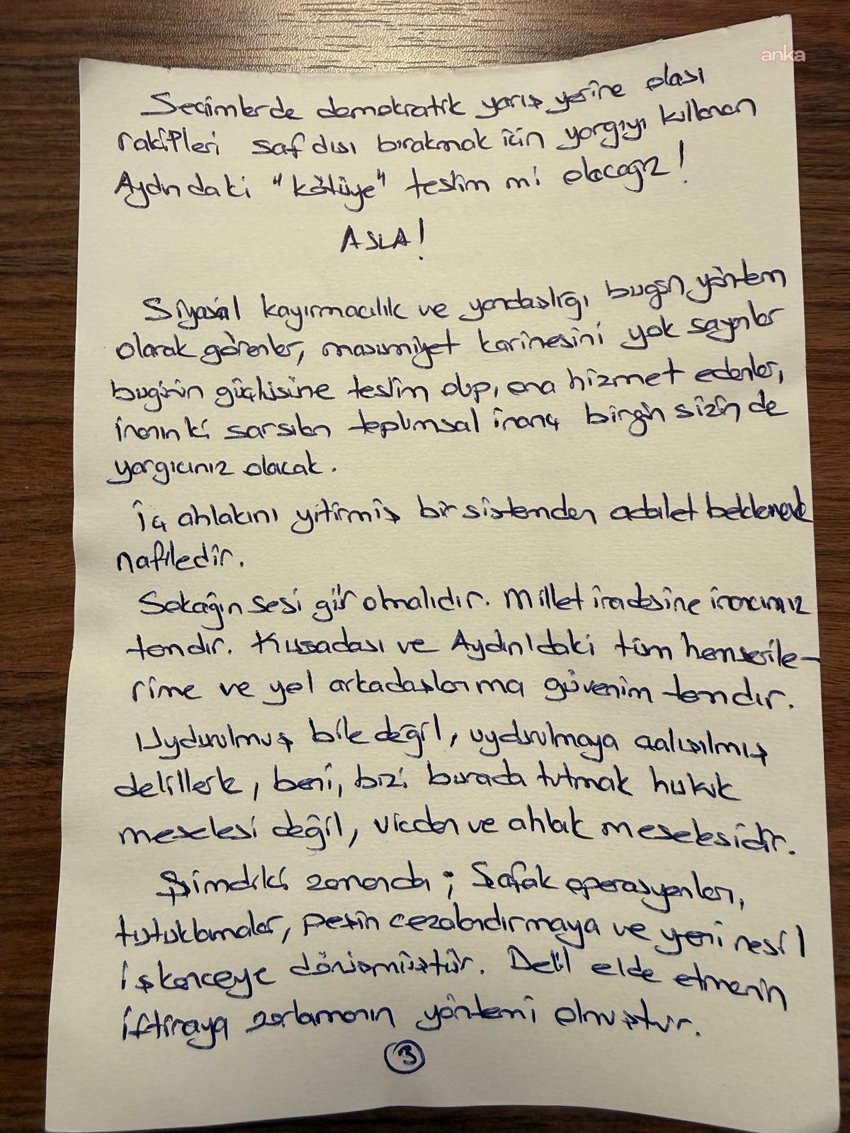 anka
Seçimlerde demokratik yarış yerine olası
rakipleri saf dışı bırakmak için yargıyı kullanan
Aydındaki "kötüye" teslim mi olacağız!
ASLA!
Siyasal kayırmacılık ve yandaşlığı bugün yöntem
olarak görenler, masumiyet karinesini yok sayanlar
bugünün güçlüsüne teslim olup, ona hizmet edenler,
inanın ki sarsılan toplumsal inanç birgün sizin de
yargıcınız olacak.
İç ahlakını yitirmiş bir sistemden adalet beklemek
nafiledir.
Sokağın sesi gür olmalıdır. Millet iradesine inancımız
tamdır. Kuşadası ve Aydın'daki tüm hemşerile-
rime ve yol arkadaşlarıma güvenim tamdır.
Uydurulmuş bile değil, uydurulmaya çalışılmış
delillerle, beni, bizi burada tutmak hukuk
meselesi değil, vicdan ve ahlak meselesidir.
Şimdiki zamanda; Şafak operasyonları,
tutuklamalar, peşin cezalandırmaya ve yeni nesil
işkenceye dönüşmüştür. Delil elde etmenin
iftiraya zorlamanın yöntemi olmuştur.
3